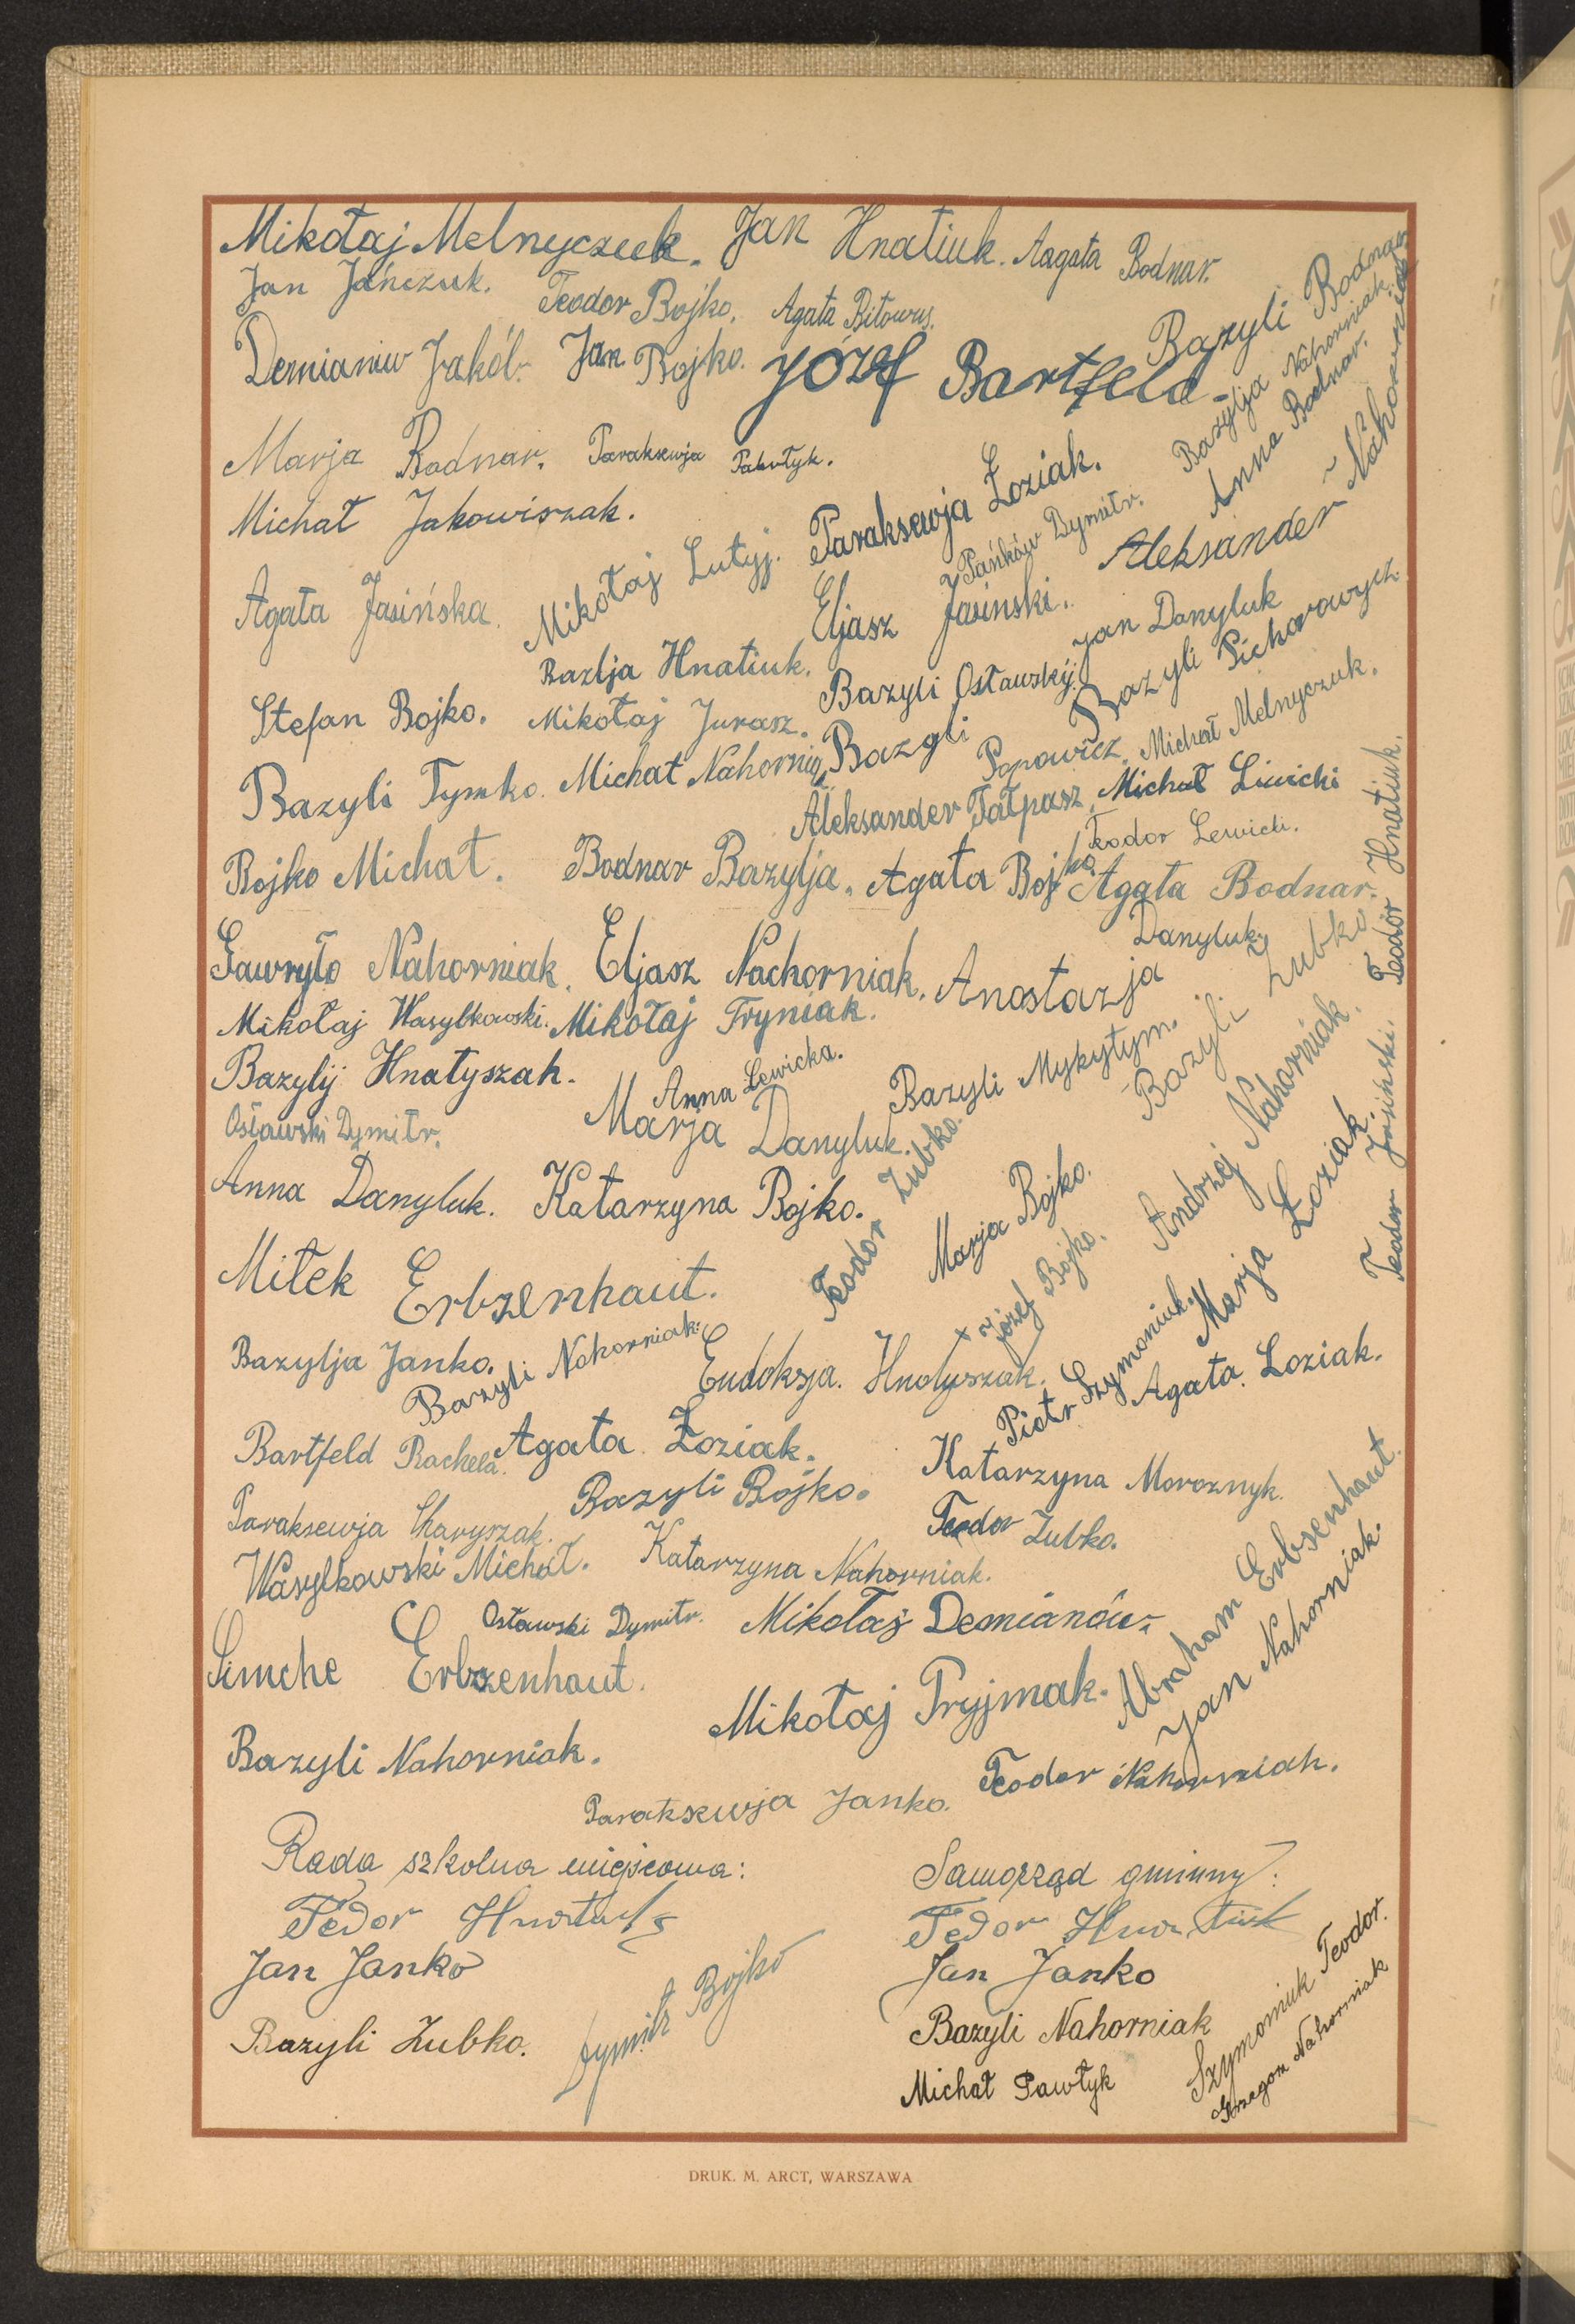 Mikołaj Melnyczuk. Jan Hnatiuk. Aagata Bodnar.
Jan Jańczuk. Teodor Bojko. Agata Bitowus.
Bazyli Bodnar
Demianiw Jakób. Jan Bojko. Józef Bartfeld.
Bazylja Nahorniak.
Anna Bodnar.
Marja Bodnar. Paraksewja
Michał Jakowiszak.
Mikołaj Lutyj. Paraksewja Łoziak.
Pańków Dymitr.
Aleksander Nahorniak
Agata Jasińska. Eljasz Jasinski.
Bazlja Hnatiuk. Jan Danyluk
Bazyli Ostawskij. Bazyli Pichorowycz.
Stefan Bojko. Mikołaj Jurasz.
Bazyli Tymko. Michał Nahorniak Bazyli Popowicz. Michał Melnyczuk.
Aleksander Tałpasz. Michał Liwicki
Teodor Lewicki.
Bojko Michał. Bodnar Bazylja. Agata Bojko. Agata Bodnar.
Teodor Hnatiuk.
Gawryło Nahorniak. Eljasz Nachorniak. Anastazja Danyluk.
Mikołaj Wasylkowski. Mikołaj Fryniak.
Bazyli Zubko.
Bazylij Hnatyszak. Anna Lewicka. Bazyli Mykytym.
Ostawski Dymitr. Marja Danyluk.
Teodor Zubko.
Andrzej Nahorniak.
Teodor Jasiński.
Anna Danyluk. Katarzyna Bojko.
Marja Bojko.
+ Józef Bojko.
Marja Łoziak.
Miłek Erbzenhaut.
Bazylja Janko. Bazyli Nahorniak. Eudoksja. Hnatyszak.
Piotr Szymoniuk.
Agata. Łoziak.
Bartfeld Rachela. Agata Łoziak.
Katarzyna Moroznyk.
Paraksewja Charyszak. Bazyli Bojko.
Teodor Zubko.
Wasylkowski Michał. Katarzyna Nahorniak.
Ostawski Dymitr. Mikołaj Demianów.
Abraham Erbsenhaut.
Jan Nahorniak.
Simche Erbzenhaut.
Mikołaj Pryjmak.
Bazyli Nahorniak.
Paraksewja Janko. Teodor Nahorniak.
Rada szkolna miejscowa:
Fedor Hnatiuk
Jan Janko
Dymitr Bojko
Bazyli Zubko.
Samorząd gminny:
Fedor Hnatiuk
Jan Janko
Bazyli Nahorniak
Michał Pawłyk
Szymoniuk Teodor.
Grzegorz Nahorniak
DRUK. M. ARCT, WARSZAWA